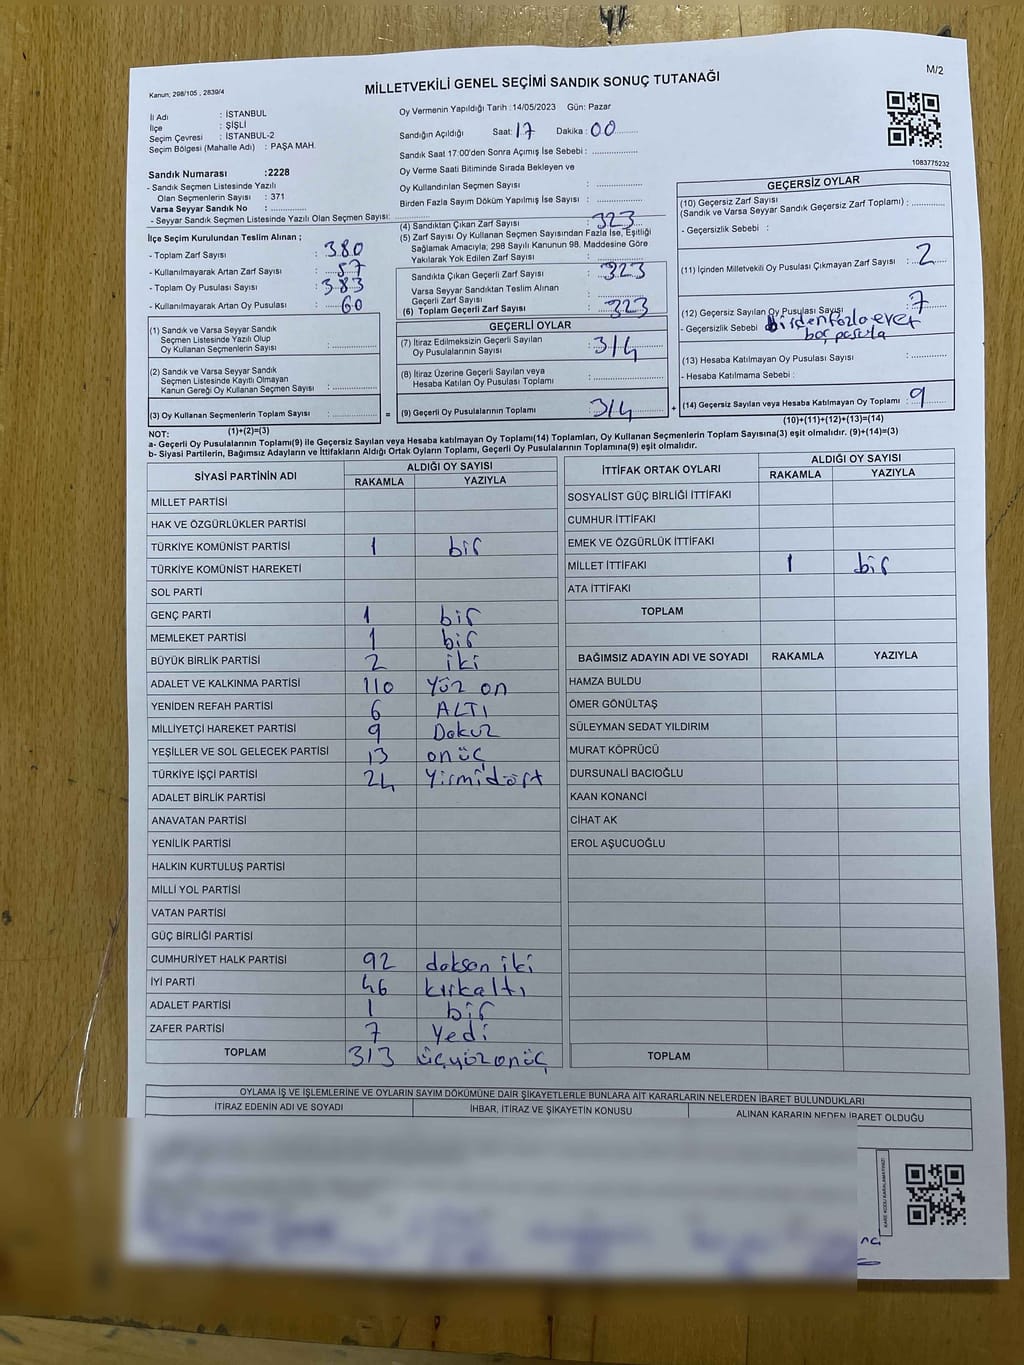 M/2
Kanun, 298/105 , 2839/4
MİLLETVEKİLİ GENEL SEÇİMİ SANDIK SONUÇ TUTANAĞI
İl Adı : İSTANBUL
İlçe : ŞİŞLİ
Seçim Çevresi : İSTANBUL-2
Seçim Bölgesi (Mahalle Adı) : PAŞA MAH.
Sandık Numarası :2228
- Sandık Seçmen Listesinde Yazılı
Olan Seçmenlerin Sayısı : 371
Varsa Seyyar Sandık No : ..............
- Seyyar Sandık Seçmen Listesinde Yazılı Olan Seçmen Sayısı: ..............
Oy Vermenin Yapıldığı Tarih :14/05/2023 Gün: Pazar
Sandığın Açıldığı Saat: 17 Dakika : 00
Sandık Saat 17:00'den Sonra Açımış İse Sebebi : ..............
Oy Verme Saati Bitiminde Sırada Bekleyen ve
Oy Kullandırılan Seçmen Sayısı : ..............
Birden Fazla Sayım Döküm Yapılmış İse Sayısı : ..............
1083775232
İlçe Seçim Kurulundan Teslim Alınan ;
- Toplam Zarf Sayısı : 380
- Kullanılmayarak Artan Zarf Sayısı : 57
- Toplam Oy Pusulası Sayısı : 383
- Kullanılmayarak Artan Oy Pusulası : 60
(1) Sandık ve Varsa Seyyar Sandık
Seçmen Listesinde Yazılı Olup
Oy Kullanan Seçmenlerin Sayısı : ..............
(2) Sandık ve Varsa Seyyar Sandık
Seçmen Listesinde Kayıtlı Olmayan
Kanun Gereği Oy Kullanan Seçmen Sayısı : ..............
(3) Oy Kullanan Seçmenlerin Toplam Sayısı : .............. =
(1)+(2)=(3)
(4) Sandıktan Çıkan Zarf Sayısı : 323
(5) Zarf Sayısı Oy Kullanan Seçmen Sayısından Fazla İse, Eşitliği
Sağlamak Amacıyla; 298 Sayılı Kanunun 98. Maddesine Göre
Yakılarak Yok Edilen Zarf Sayısı : ..............
Sandıkta Çıkan Geçerli Zarf Sayısı : 323
Varsa Seyyar Sandıktan Teslim Alınan
Geçerli Zarf Sayısı : ..............
(6) Toplam Geçerli Zarf Sayısı : 323
GEÇERLİ OYLAR
(7) İtiraz Edilmeksizin Geçerli Sayılan
Oy Pusulalarının Sayısı : 314
(8) İtiraz Üzerine Geçerli Sayılan veya
Hesaba Katılan Oy Pusulası Toplamı : ..............
(9) Geçerli Oy Pusulalarının Toplamı : 314 +
GEÇERSİZ OYLAR
(10) Geçersiz Zarf Sayısı
(Sandık ve Varsa Seyyar Sandık Geçersiz Zarf Toplamı) : ..............
- Geçersizlik Sebebi :
(11) İçinden Milletvekili Oy Pusulası Çıkmayan Zarf Sayısı : 2
(12) Geçersiz Sayılan Oy Pusulası Sayısı : 7
- Geçersizlik Sebebi : birden fazla evet
boş pusula
(13) Hesaba Katılmayan Oy Pusulası Sayısı : ..............
- Hesaba Katılmama Sebebi :
(14) Geçersiz Sayılan veya Hesaba Katılmayan Oy Toplamı : 9
(10)+(11)+(12)+(13)=(14)
NOT:
a- Geçerli Oy Pusulalarının Toplamı(9) ile Geçersiz Sayılan veya Hesaba katılmayan Oy Toplamı(14) Toplamları, Oy Kullanan Seçmenlerin Toplam Sayısına(3) eşit olmalıdır. (9)+(14)=(3)
b- Siyasi Partilerin, Bağımsız Adayların ve İttifakların Aldığı Ortak Oyların Toplamı, Geçerli Oy Pusulalarının Toplamına(9) eşit olmalıdır.
SİYASİ PARTİNİN ADI ALDIĞI OY SAYISI
RAKAMLA YAZIYLA
MİLLET PARTİSİ
HAK VE ÖZGÜRLÜKLER PARTİSİ
TÜRKİYE KOMÜNİST PARTİSİ 1 bir
TÜRKİYE KOMÜNİST HAREKETİ
SOL PARTİ
GENÇ PARTİ 1 bir
MEMLEKET PARTİSİ 1 bir
BÜYÜK BİRLİK PARTİSİ 2 iki
ADALET VE KALKINMA PARTİSİ 110 Yüz on
YENİDEN REFAH PARTİSİ 6 ALTI
MİLLİYETÇİ HAREKET PARTİSİ 9 Dokuz
YEŞİLLER VE SOL GELECEK PARTİSİ 13 onüç
TÜRKİYE İŞÇİ PARTİSİ 24 Yirmidört
ADALET BİRLİK PARTİSİ
ANAVATAN PARTİSİ
YENİLİK PARTİSİ
HALKIN KURTULUŞ PARTİSİ
MİLLİ YOL PARTİSİ
VATAN PARTİSİ
GÜÇ BİRLİĞİ PARTİSİ
CUMHURİYET HALK PARTİSİ 92 doksan iki
İYİ PARTİ 46 kırkaltı
ADALET PARTİSİ 1 bir
ZAFER PARTİSİ 7 Yedi
TOPLAM 313 üçyüzonüç
İTTİFAK ORTAK OYLARI ALDIĞI OY SAYISI
RAKAMLA YAZIYLA
SOSYALİST GÜÇ BİRLİĞİ İTTİFAKI
CUMHUR İTTİFAKI
EMEK VE ÖZGÜRLÜK İTTİFAKI
MİLLET İTTİFAKI 1 bir
ATA İTTİFAKI
TOPLAM
BAĞIMSIZ ADAYIN ADI VE SOYADI RAKAMLA YAZIYLA
HAMZA BULDU
ÖMER GÖNÜLTAŞ
SÜLEYMAN SEDAT YILDIRIM
MURAT KÖPRÜCÜ
DURSUNALİ BACIOĞLU
KAAN KONANCİ
CİHAT AK
EROL AŞUCUOĞLU
TOPLAM
OYLAMA İŞ VE İŞLEMLERİNE VE OYLARIN SAYIM DÖKÜMÜNE DAİR ŞİKAYETLERLE BUNLARA AİT KARARLARIN NELERDEN İBARET BULUNDUKLARI
İTİRAZ EDENİN ADI VE SOYADI İHBAR, İTİRAZ VE ŞİKAYETİN KONUSU ALINAN KARARIN NEDEN İBARET OLDUĞU